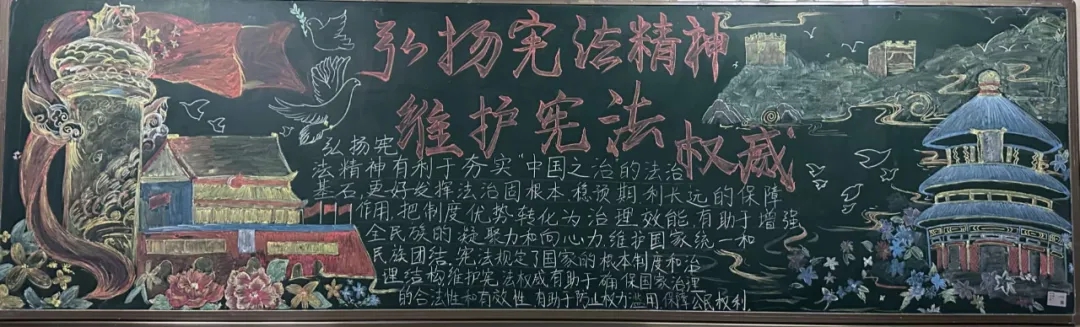 弘扬宪法精神
维护宪法权威
弘扬宪
法精神有利于夯实“中国之治”的法治
基石,更好发挥法治固根本、稳预期、利长远的保障
作用,把制度优势转化为治理效能,有助于增强
全民族的凝聚力和向心力,维护国家统一和
民族团结。宪法规定了国家的根本制度和治
理结构,维护宪法权威有助于确保国家治理
的合法性和有效性,有助于防止权力滥用,保障公民权利。